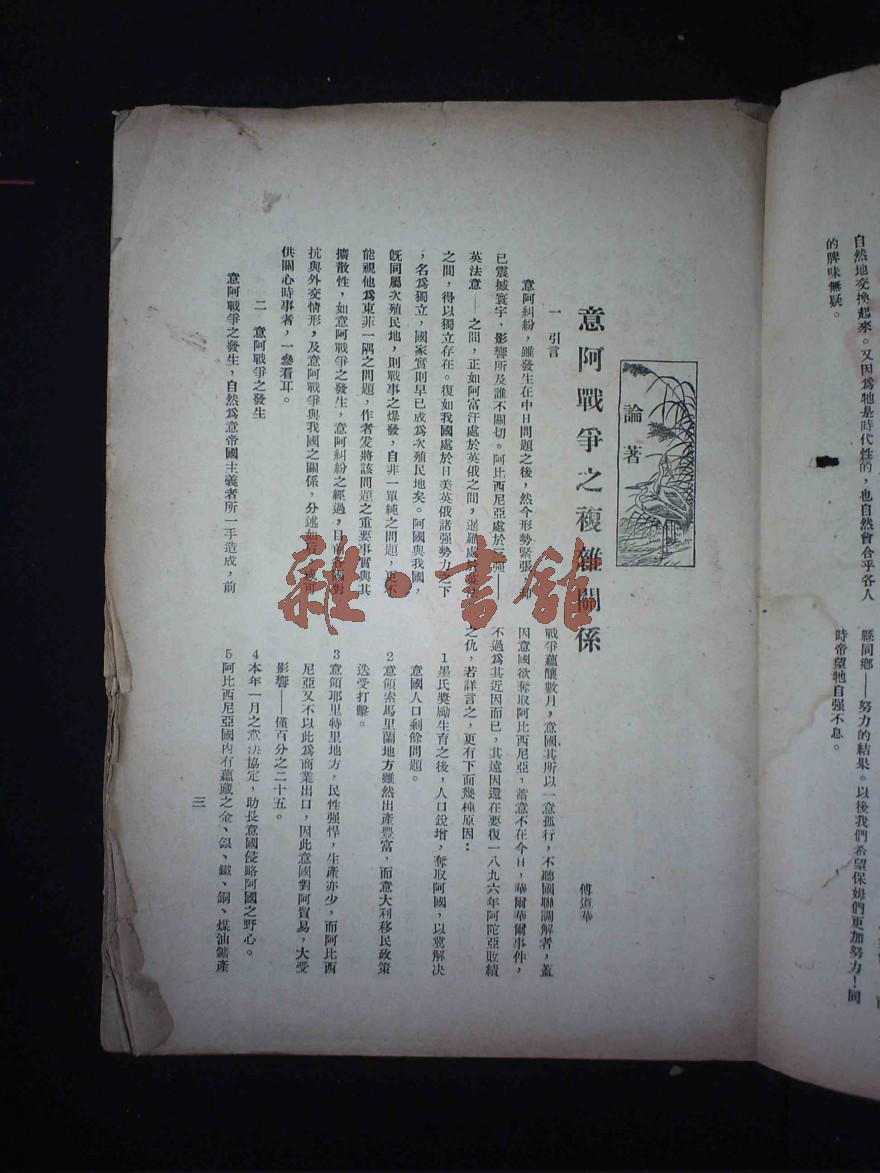 自然地交換起來。又因為牠是時代性的，也自然會合乎各人
的脾味無疑。
縣同鄉——努力的結果。以後我們希望保姆們更加努力！同
時希望牠自强不息。
論著
意阿戰爭之複雜關係
傅道華
一　引言
意阿糾紛，雖發生在中日問題之後，然今形勢緊張，
已震撼寰宇，影響所及誰不關切。阿比西尼亞處於三强——
英法意——之間，正如阿富汗處於英俄之間，暹羅處於英法
之間，得以獨立存在。復如我國處於日美英俄諸强勢力之下
，名爲獨立，國家實則早已成爲次殖民地矣。阿國與我國，
旣同屬次殖民地，則戰事之爆發，自非一單純之問題，更不
能視他爲東非一隅之問題，作者爰將該問題之重要事實與其
擴散性，如意阿戰爭之發生，意阿糾紛之經過，目前各國對
抗與外交情形，及意阿戰爭與我國之關係，分述如后，或可
供關心時事者，一參看耳。
二　意阿戰爭之發生
意阿戰爭之發生，自然爲意帝國主義者所一手造成，前
戰爭蘊釀數月，意國其所以一意孤行，不聽國聯調解者，蓋
因意國欲奪取阿比西尼亞，蓄意不在今日，華爾華爾事件，
不過爲其近因而已，其遠因還在要復一八九六年阿陀亞敗績
之仇，若詳言之，更有下面幾種原因：
1 墨氏獎勵生育之後，人口銳增，奪取阿國，以冀解決
意國人口剩餘問題。
2 意領索馬里蘭地方雖然出產豐富，而意大利移民政策
迭受打擊。
3 意領耶里特里地方，民性强悍，生產亦少，而阿比西
尼亞又不以此爲商業出口，因此意國對阿貿易，大受
影響——僅百分之二十五。
4 本年一月之意法協定，助長意國侵略阿國之野心。
5 阿比西尼亞國內有蘊藏之金、銀、鐵、銅、煤油鑛產
三
雜·書館